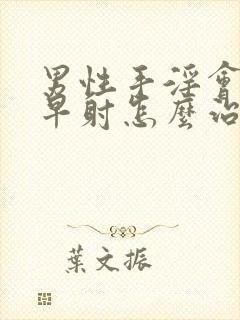 男性手淫會
早射怎麼治
葉文振